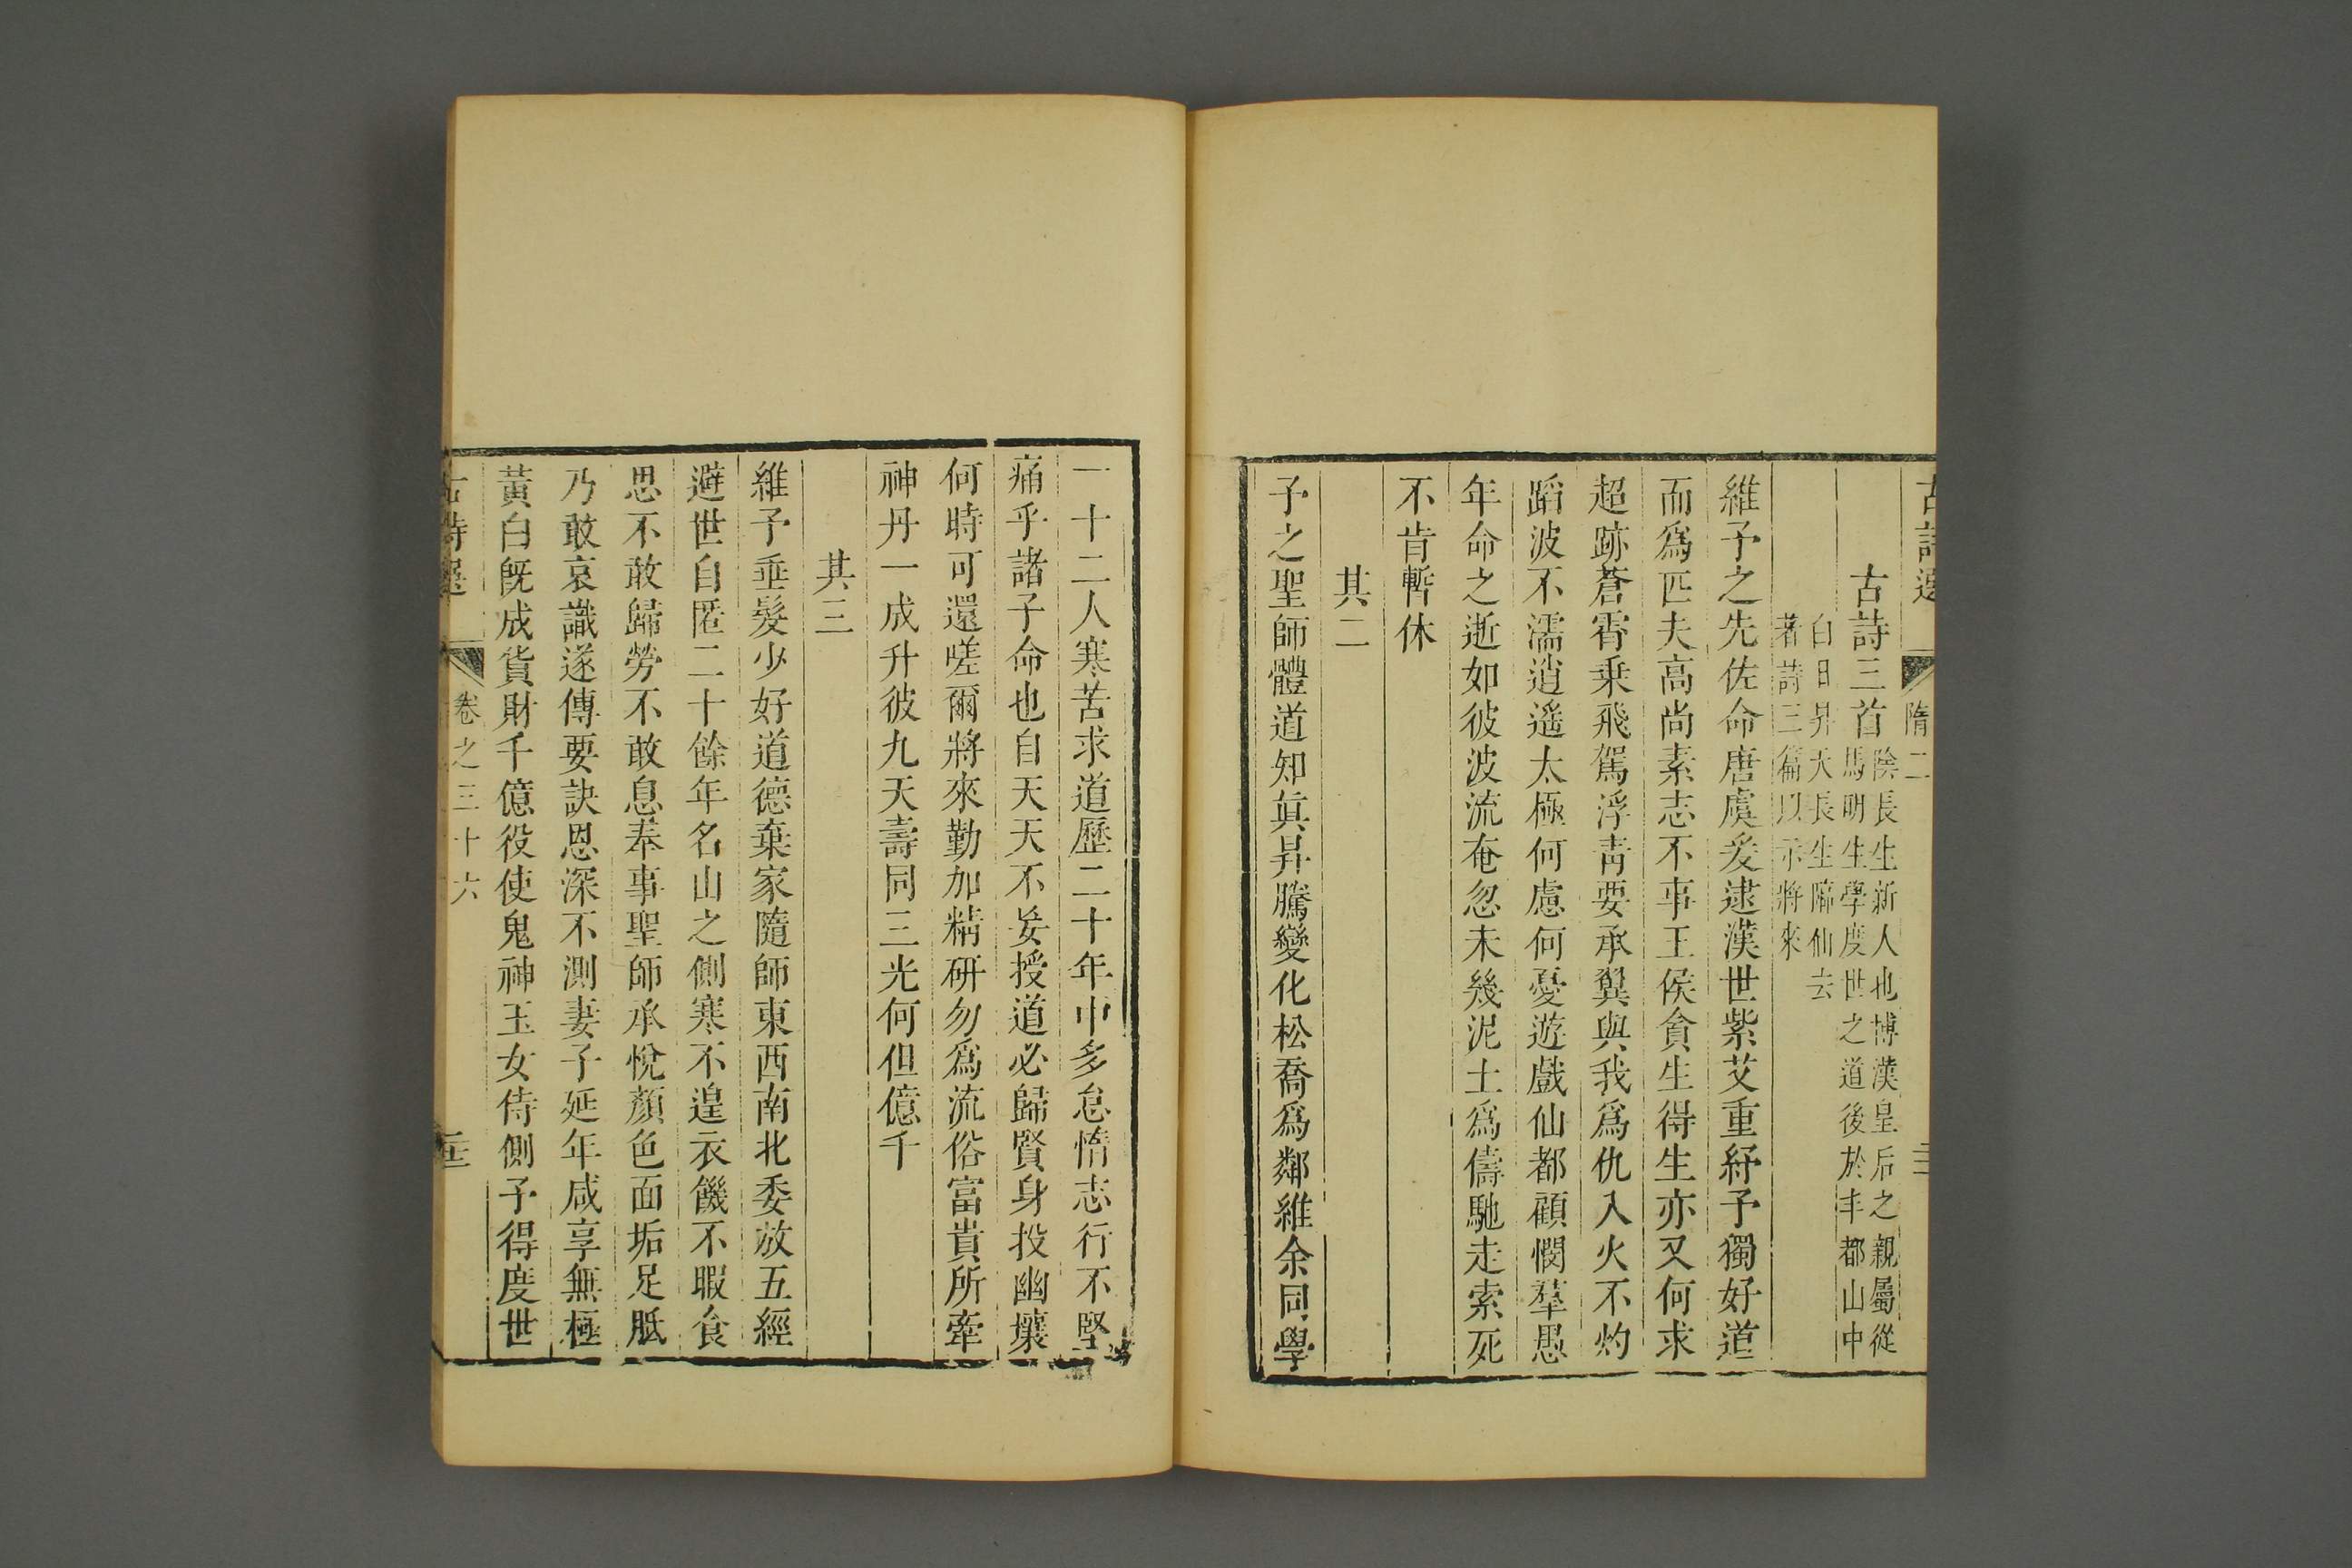 古詩選 隋二
古詩三首 陰長生新人也博漢皇后之親屬從
馬明生學度世之道後於丰都山中
白日昇天長生臨仙去
著詩三篇以示將來
維予之先佐命唐虞爰逮漢世紫艾重紆予獨好道
而爲匹夫高尚素志不事王侯貪生得生亦又何求
超跡蒼霄乗飛駕浮靑要承翼與我爲仇入火不灼
蹈波不濡逍遙太極何慮何憂遊戲仙都顧憫羣愚
年命之逝如彼波流奄忽未幾泥土爲儔馳走索死
不肯暫休
其二
予之聖師體道知眞昇騰變化松喬爲鄰維余同學
一十二人寒苦求道歷二十年中多怠惰志行不堅
痛乎諸子命也自天天不妄授道必歸賢身投幽壤
何時可還嗟爾將來勤加精研勿爲流俗富貴所牽
神丹一成升彼九天壽同三光何但億千
其三
維予垂髮少好道德棄家隨師東西南北委放五經
避世自匿二十餘年名山之側寒不遑衣饑不暇食
思不敢歸勞不敢息奉事聖師承悅顏色面垢足胝
乃敢哀識遂傳要訣恩深不測妻子延年咸享無極
黃白旣成貨財千億役使鬼神玉女侍側予得度世
古詩選 卷之三十六